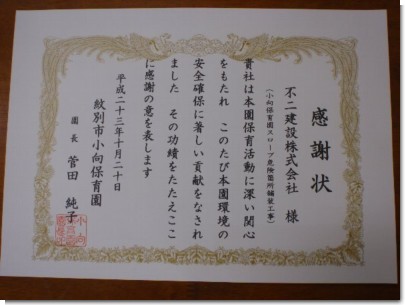 感謝状
不二建設株式会社 様
(小向保育園スロープ危険箇所舗装工事)
貴社は本園保育活動に深い関心
をもたれ このたび本園環境の
安全確保に著しい貢献をなされ
ました その功績をたたえここ
に感謝の意を表します
平成二十三年十月二十日
紋別市小向保育園
園長 菅田 純子